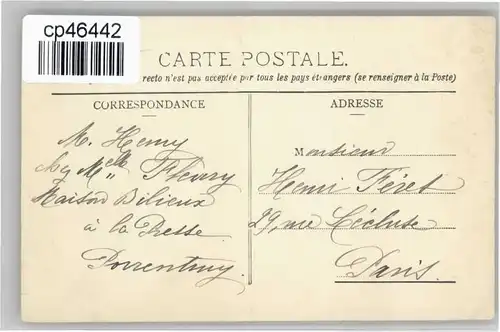 cp46442
CARTE POSTALE.
recto n'est pas acceptée par tous les pays étrangers (se renseigner à la Poste)
CORRESPONDANCE
M. Henry
chz Melle Fleury
Maison Bilieux
à la Presse
Porrentruy.
ADRESSE
Monsieur
Henri Féret
29, rue Lécluse
Paris.